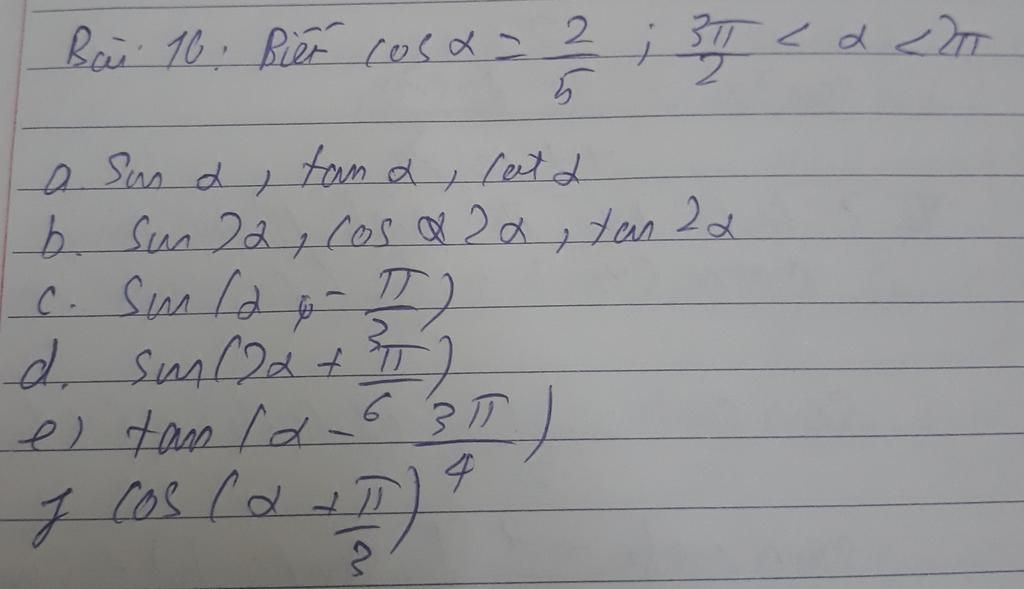 Bài 10: Biết cos α = 2/5 ; 3π/2 < α < 2π
a. Sin α, tan α, cot α
b. Sin 2α, cos 2α, tan 2α
c. Sin (α - π/3)
d. Sin (2α + π/6)
e) tan (α - 3π/4)
f cos (α + π/3)